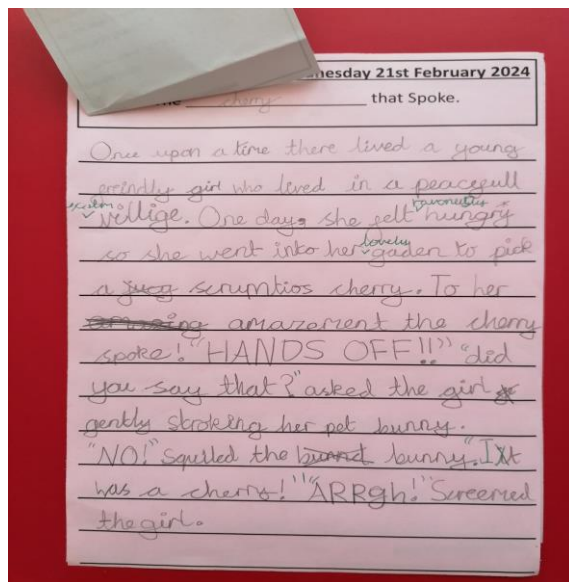 nesday 21st February 2024
cherry that Spoke.
Once upon a time there lived a young
girl who lived in a peacefull
ravenously
villige. One day, she felt hungry
lovely
so she went into her gaden to pick
a scrumptios cherry. To her
amazement the cherry
spoke! "HANDS OFF!!" "did
you say that?" asked the girl
gently stroking her pet bunny.
"NO!" Squiled the bunny. "It
was a cherry!" "ARRgh!" Screemed
the girl.